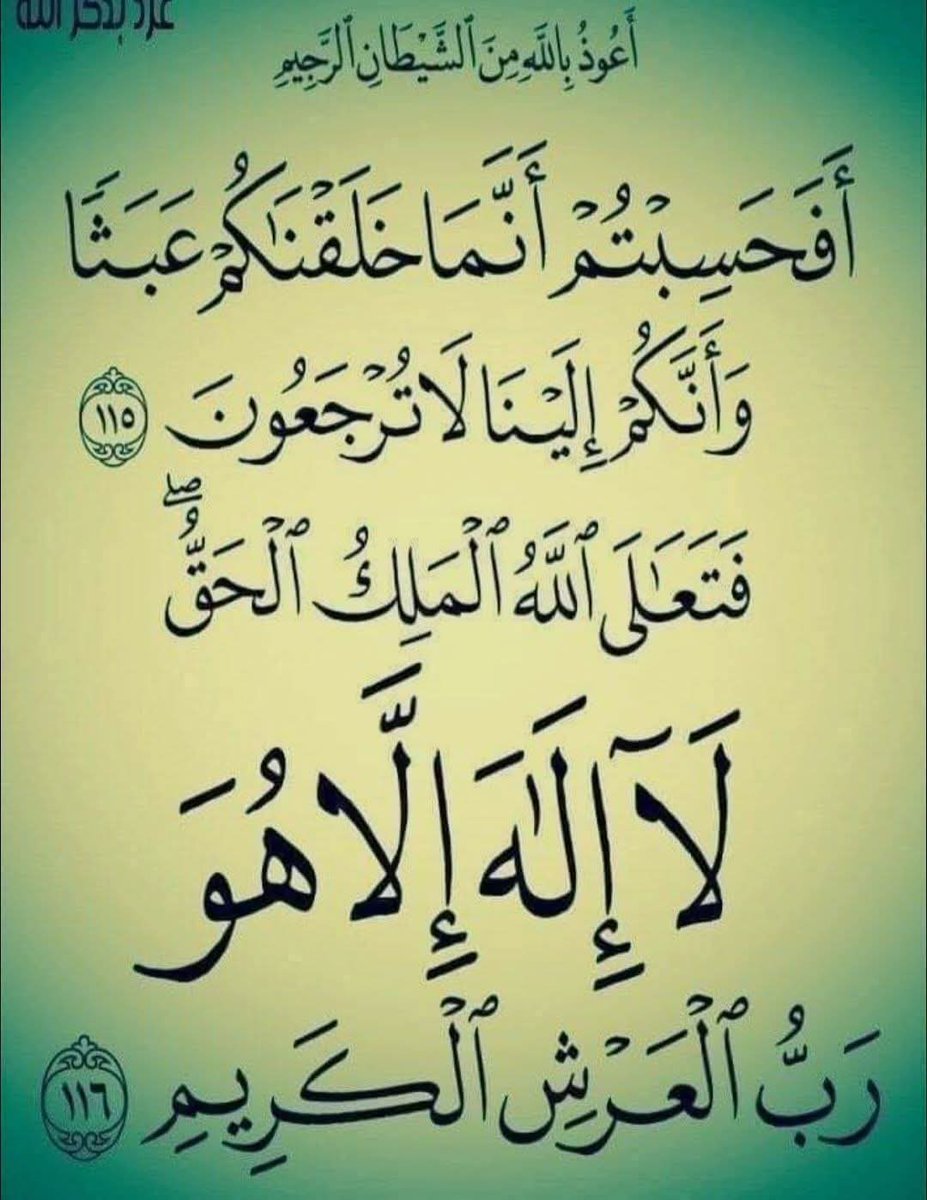 غرد بذكر الله
أَعُوذُ بِاللَّهِ مِنَ ٱلشَّيْطَانِ ٱلرَّجِيمِ
أَفَحَسِبْتُمْ أَنَّمَا خَلَقْنَٰكُمْ عَبَثًا
وَأَنَّكُمْ إِلَيْنَا لَا تُرْجَعُونَ ١١٥
فَتَعَٰلَى ٱللَّهُ ٱلْمَلِكُ ٱلْحَقُّ ۖ
لَآ إِلَٰهَ إِلَّا هُوَ
رَبُّ ٱلْعَرْشِ ٱلْكَرِيمِ ١١٦